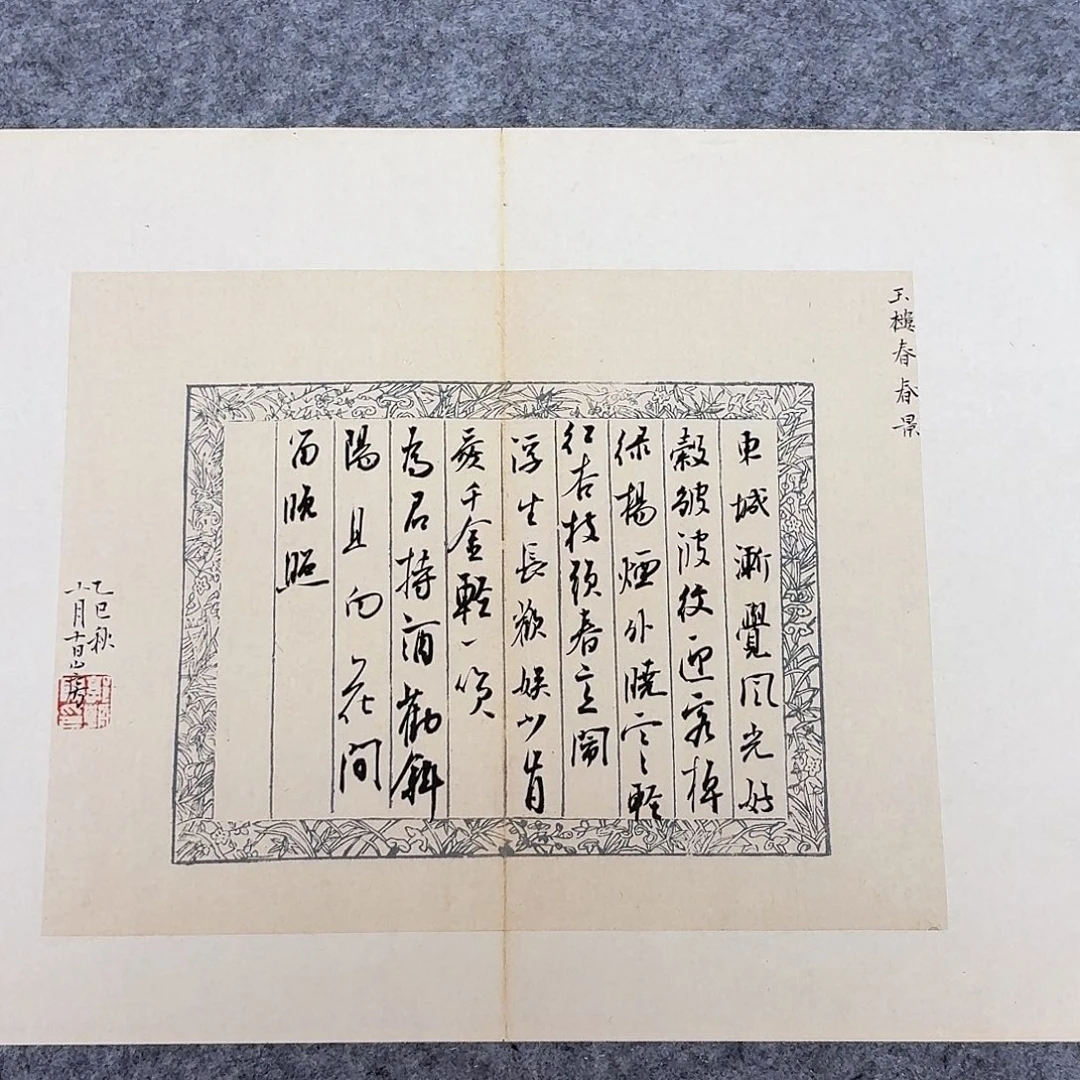 玉樓春 春景
東城漸覺風光好
縠皺波紋迎客棹
綠楊煙外曉寒輕
紅杏枝頭春意鬧
浮生長歡娛少肯
愛千金輕一笑
為君持酒勸斜
陽且向花間
留晚照
乙巳秋
八月十日山房